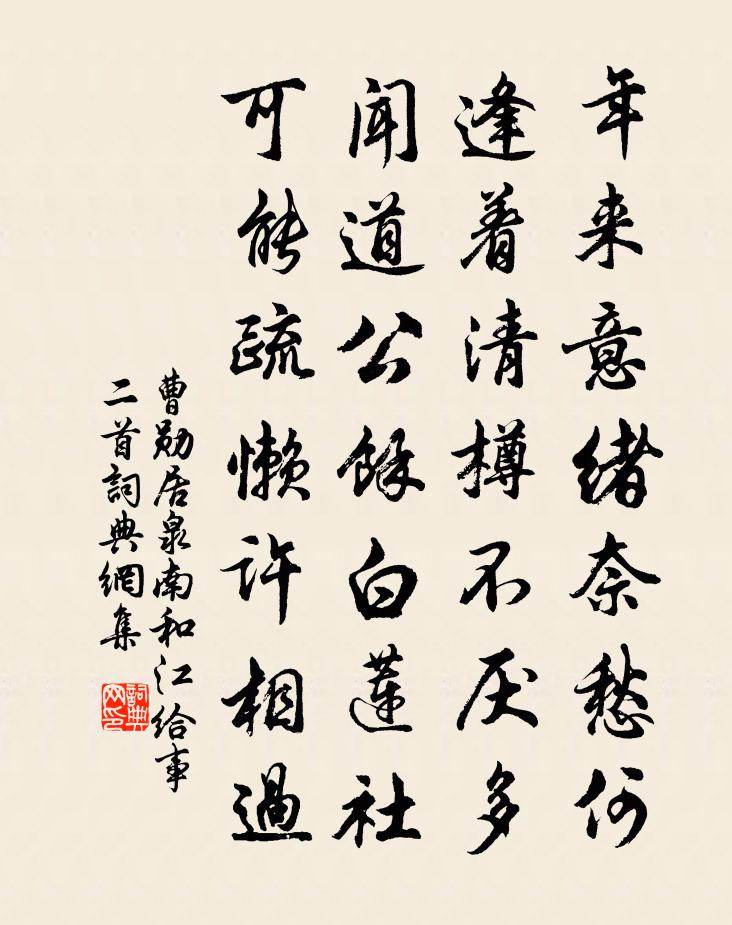 年来意绪奈愁何
逢着清樽不厌多
闻道公馀白莲社
可能疏懒许相过
曹勋居泉南和江给事
二首词典网集
词典网印